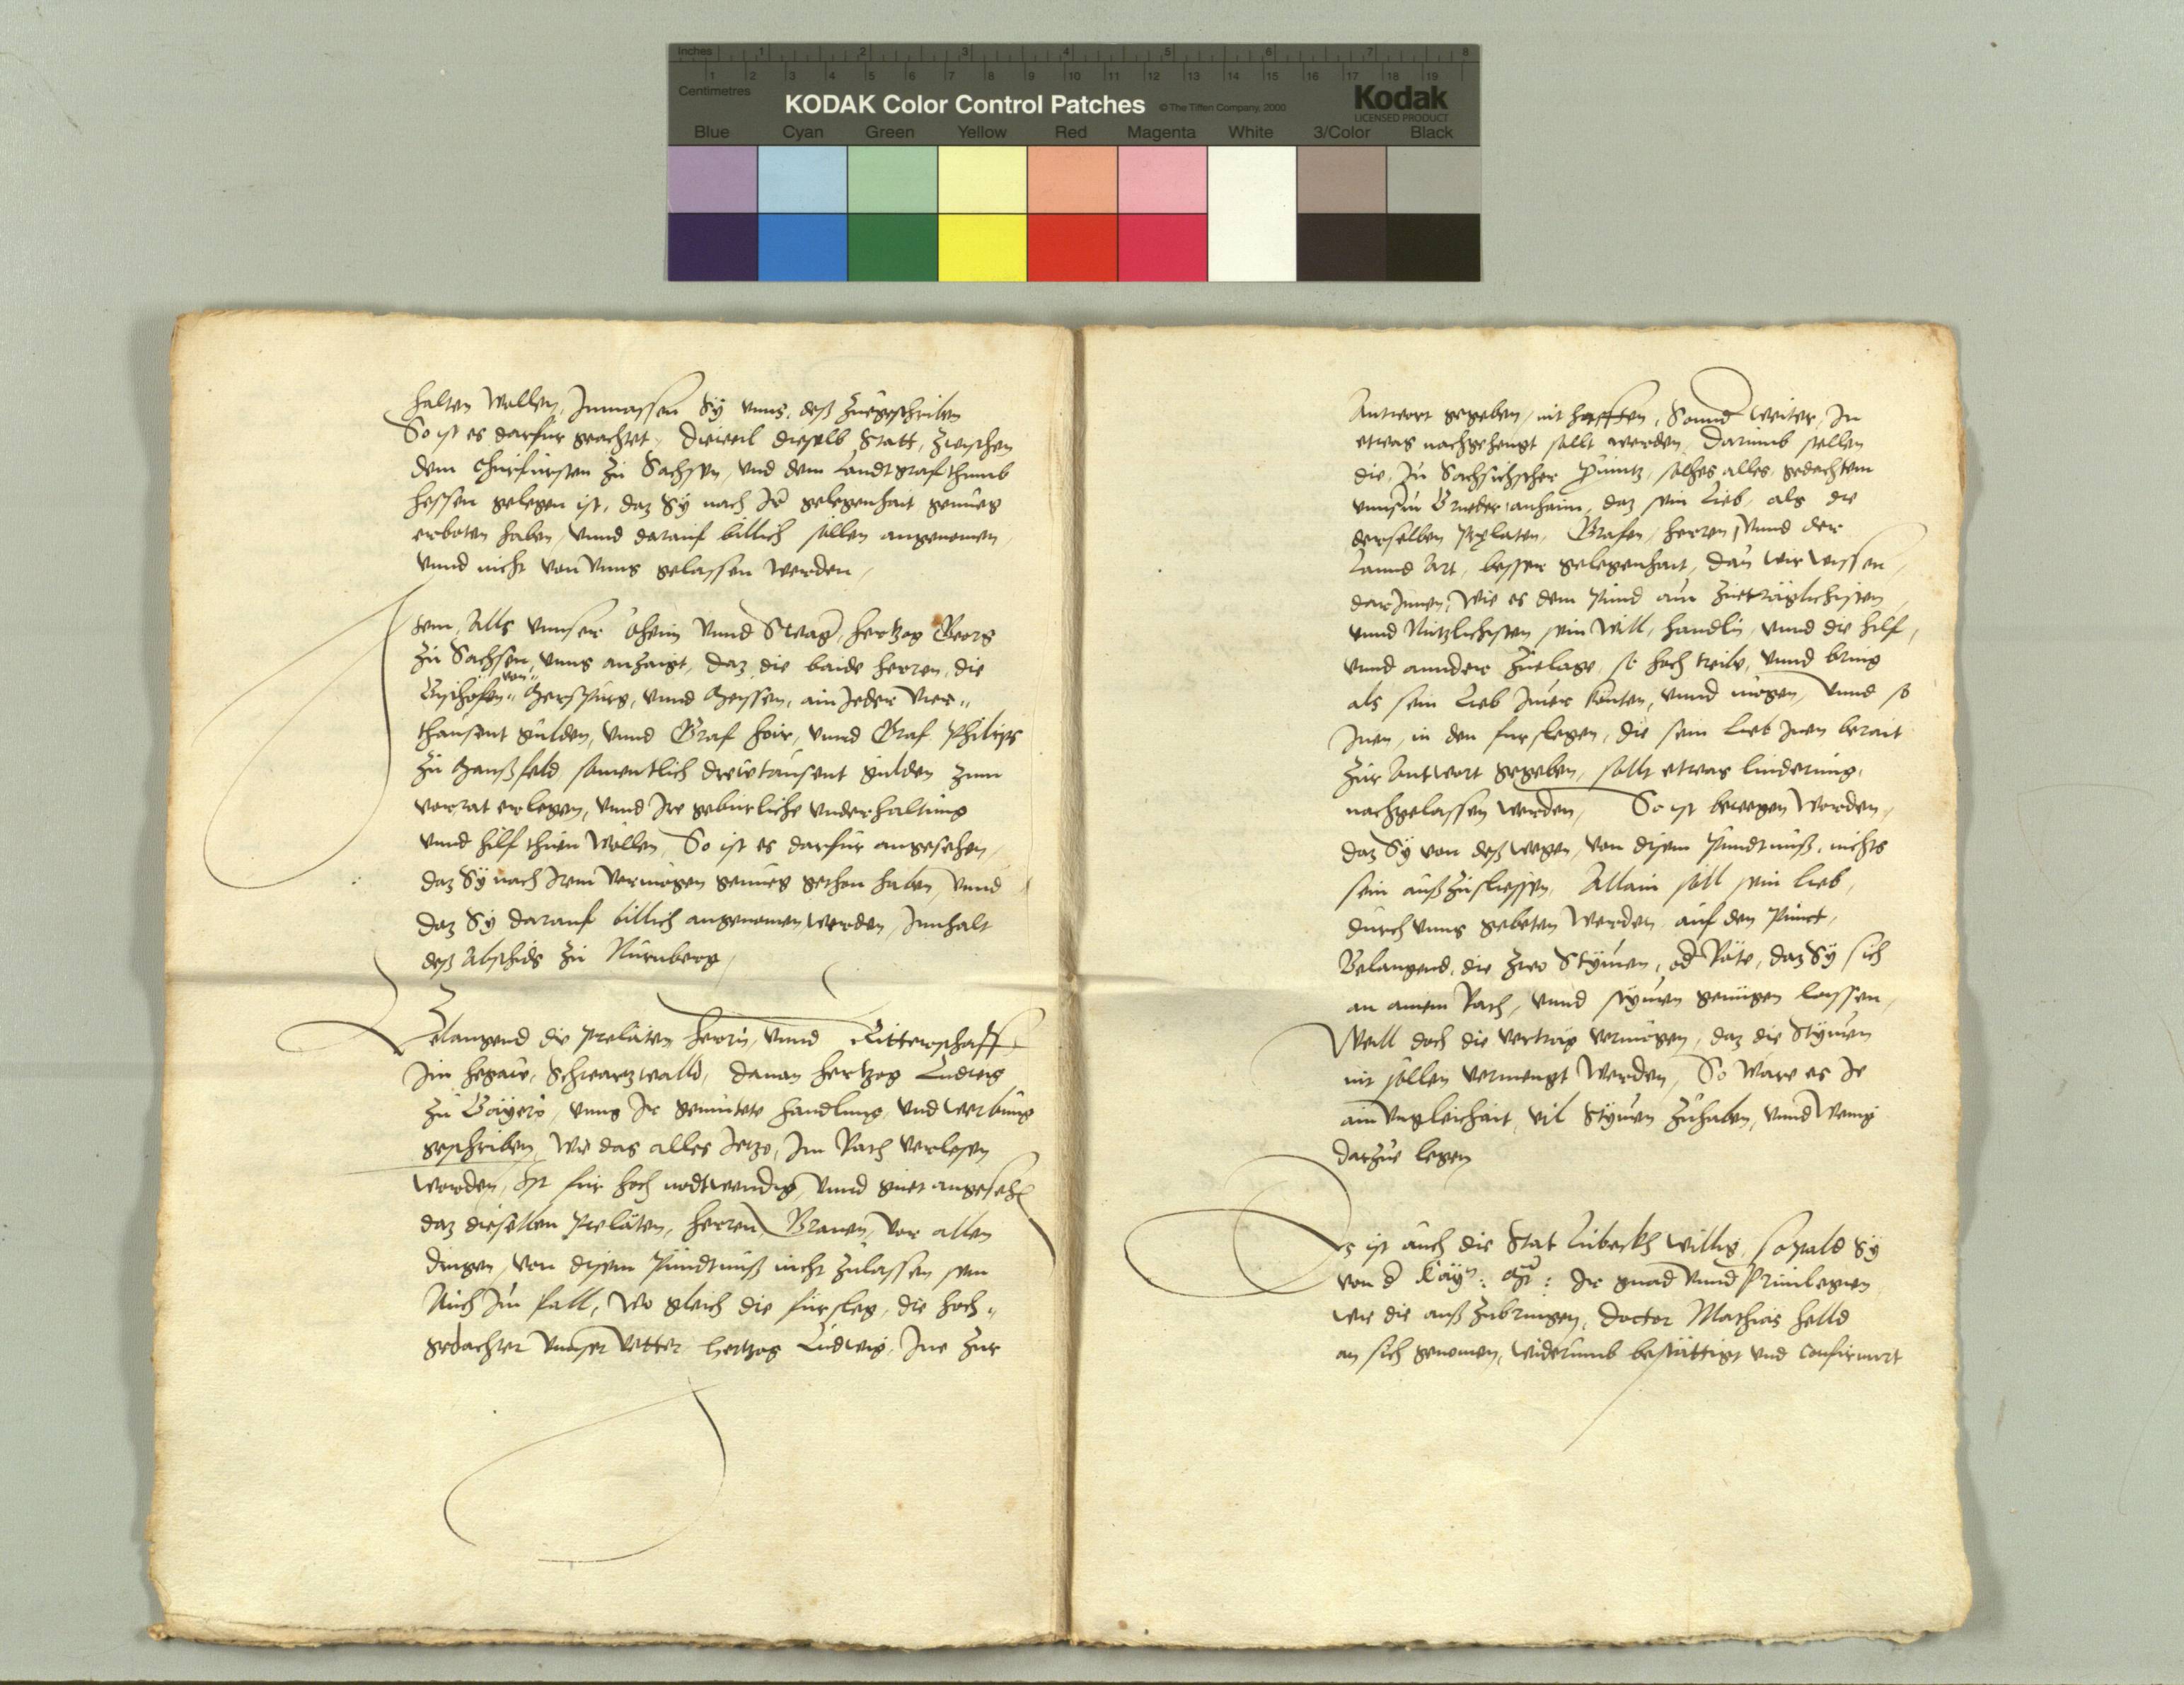 Inches 1 2 3 4 5 6 7 8
1 2 3 4 5 6 7 8 9 10 11 12 13 14 15 16 17 18 19
Centimetres
KODAK Color Control Patches © The Tiffen Company, 2000 Kodak
LICENSED PRODUCT
Blue Cyan Green Yellow Red Magenta White 3/Color Black
halten wollen, Inmassen Sÿ vnns, deß zuegeschriben
So ist es darfur geachtet, dieweil dieselb Statt, zwischen
dem Churfursten zu Sachsen, vnd dem Landtgrafthumb
hessen gelegen ist, daz Sÿ nach Ir gelegenhait genueg
erboten haben, vnnd darauf billich sollen angenomen,
vnnd nicht von vnns gelassen werden,
Item, Alls vnnser Oheim vnnd Swag, hertzog Georg
zu Sachsen, vnns anzaigt, daz die baide herren, die
Bischofen von Merspurg, vnnd Meyssen, ain Jeder vier„
thausent gulden, vnnd Graf hoir, vnnd Graf Philips
zu Manßfeld samentlich drewtausent gulden zum
vorrat erlegen, vnnd Ire geburliche vnderhaltung
vnnd hilf thuen wöllen, So ist es darfur angesehen,
daz Sÿ nach Irem vermögen genueg gethon haben, vnnd
daz Sÿ darauf billich angenomen werden, Innhalt
deß Abschids zu Nurnberg,
Belangend die prelaten herrn, vnnd Ritterschafft
Im hegaw, Schwartzwalld, dauon hertzog Ludwig
zu Bayern, vnns Ir gemutete handlung, vnd werbung
geschriben, wie das alles Jetzo, Im Rath verlesen
worden, Ist fur hoch nodtwendig, vnnd guet angesehen
daz dieselben Prelaten, herren, Grauen, vor allen
dingen, von disem Pundtnuß nicht zulassen sein
Auch Im fall, wo gleich die furschleg, die hoch„
gedachter vnnser vetter hertzog Ludwig, Ine zur
Antwort gegeben, nit hafften, Sonnd weiter, In
etwas nachgehengt sollt werden, Darumb stellen
die, In Sachsischer Prouintz, solhes alles, gedachtem
vnnserm Brueder anhaim, daz sein Lieb, als die
derselben Prelaten, Grafen, herren, vnnd der
Lannd Art, besser gelegenhait, dan wir wissen,
darInnen, wie es dem Pund am zueträglichisten,
vnnd Nutzlichisten sein will, handln, vnnd die hilf,
vnnd annder zuelage, so hoch treib, vnnd bring
als sein Lieb Imer konten, vnnd mögen, vnnd so
Inen, in den furslegen, die sein Lieb Inen berait
zur Antwort gegeben, sollt etwas linderung,
nachgelassen werden, So ist bewegen worden,
daz Sÿ von deß wegen, von disem Pundtnuß, nichts
sein außzusliessen, Allain soll sein Lieb,
durch vnns gebeten werden, auf den Punct,
Belangend, die zwo Stÿmen, od Räte, daz Sÿ sich
an ainem Rath, vnnd stÿmen genuegen lassen,
Weill doch die vertrag vermögen, daz die Stÿmen
nit sollen vermengt werden, So ware es Je
ain vngleichait, vil Stÿmen zuhaben, vnnd wenig
darzue legen
Es ist auch die Stat Lubeckh willig, sopald Sÿ
von d Kaÿn: Mt: Ir gnad vnnd Priuilegien
wie die außzubringen, Doctor Mathias Helld
an sich genomen, widerumb bestättigt vnd Confirmirt